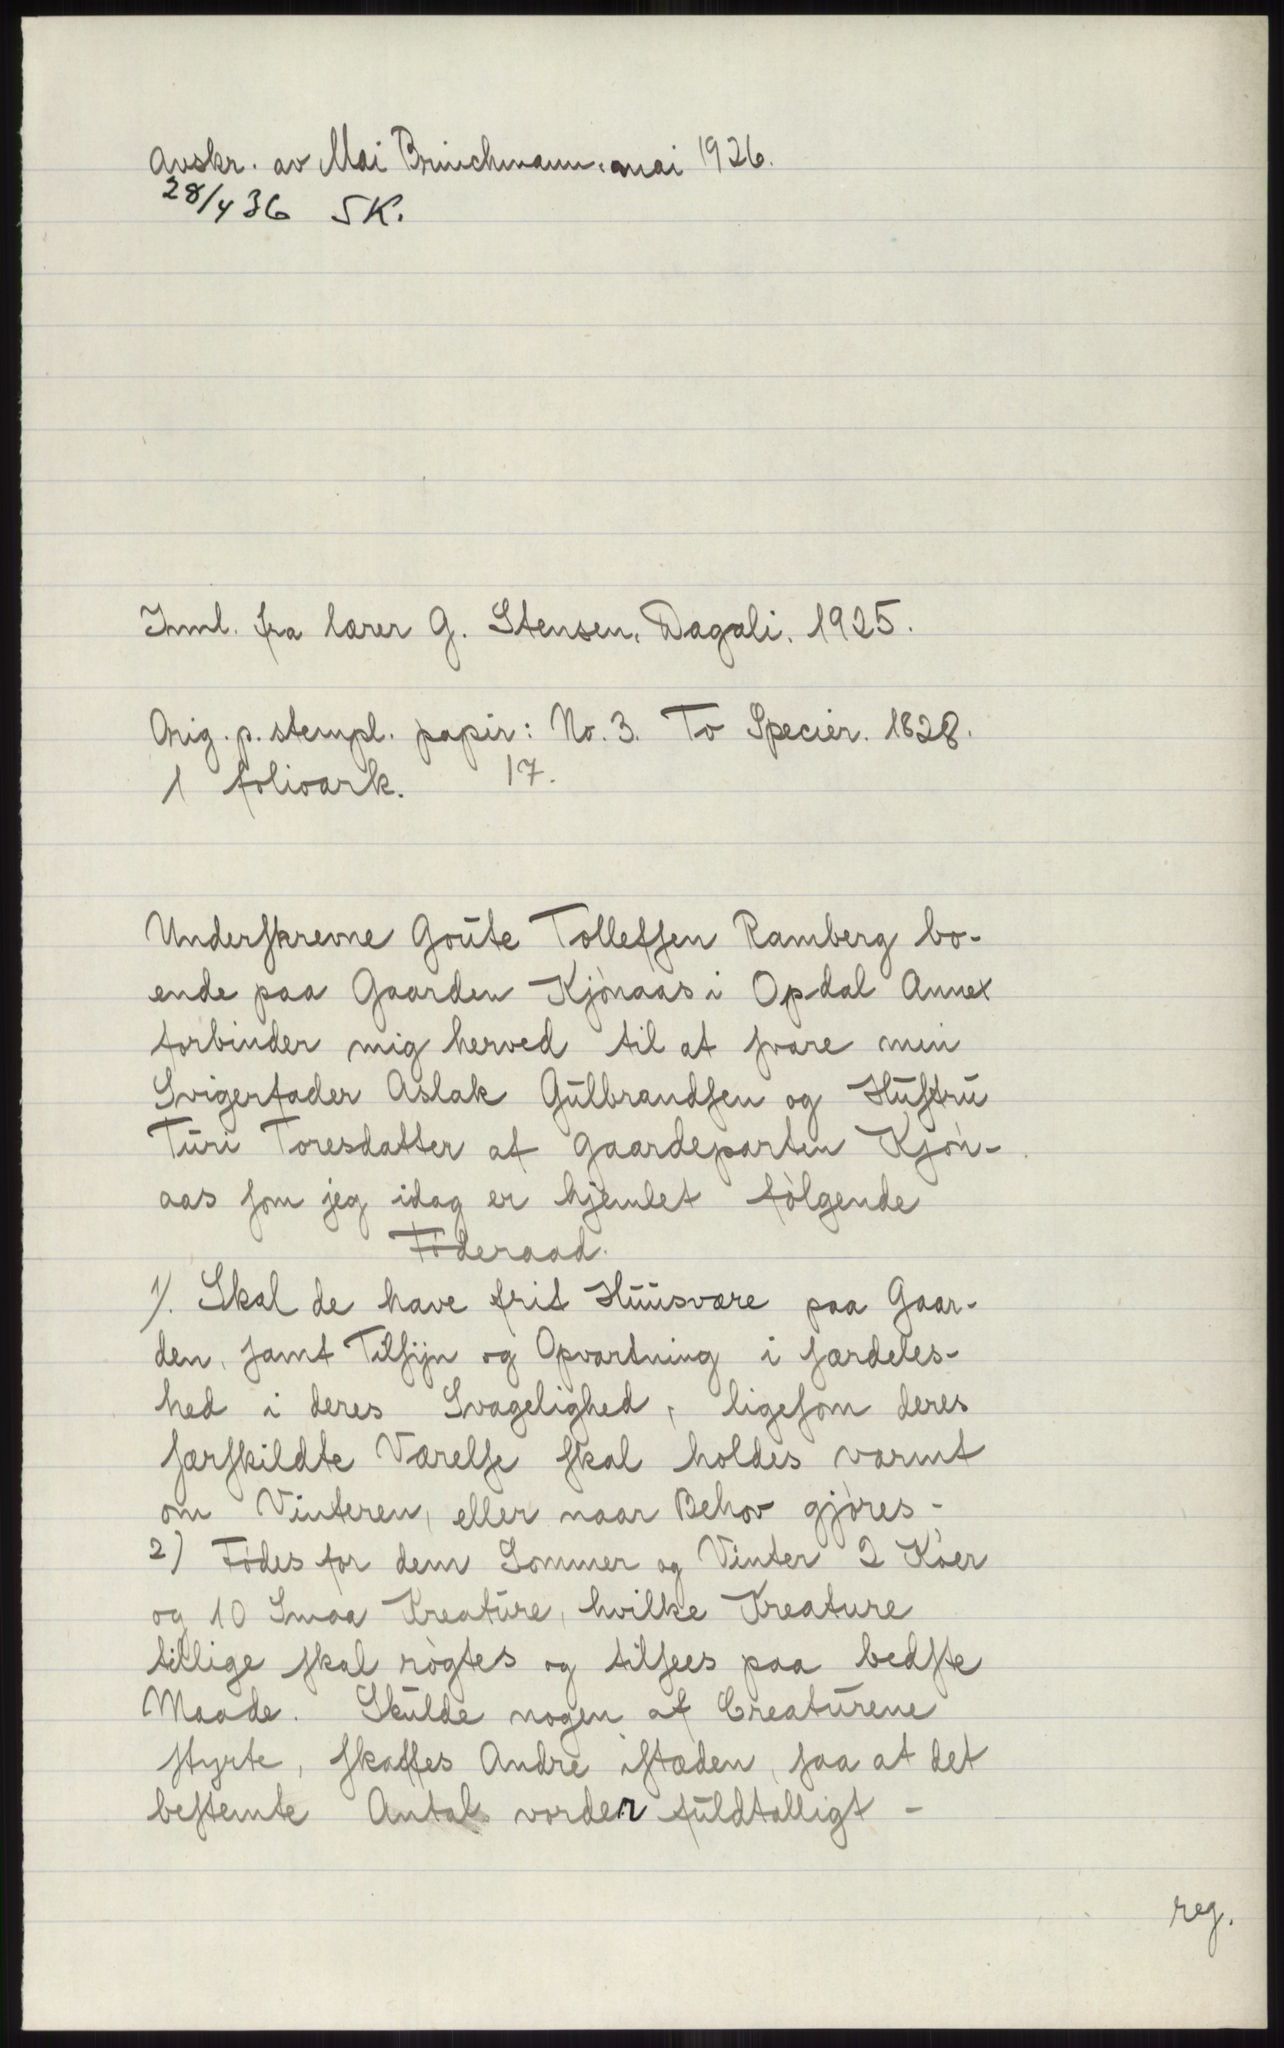 Avskr. av Mai Brinchmann, mai 1926.
28/4 36 SK.
Innl. fra lærer G. Stensen, Dagali. 1925.
Orig. p. stempl. papir: No. 3. To Specier. 1828.
1 folioark. 17.
Underskrevne Goūte Tollefsen Ramberg bo-
ende paa Gaarden Kjönaas i Opdal Annex
forbinder mig herved til at svare min
Svigerfader Aslak Gūlbrandsen og Hūstrū
Tūri Toresdatter af Gaardeparten Kjön-
aas som jeg idag er hjemlet følgende
Föderaad.
1). Skal de have frit Hūūsvære paa Gaar-
den, samt Tilsijn og Opvartning i særdeles-
hed i deres Svagelighed, ligesom deres
særskildte Værelse skal holdes varmt
om Vinteren, eller naar Behov gjöres -
2) Födes for dem Sommer og Vinter 2 Köer
og 10 Smaa Kreatūre, hvilke Kreature
tillige skal rögtes og tilsees paa bedste
Maade. Skūlde nogen af Creatūrene
styrte, skaffes Andre istæden, saa at det
bestemte Antal vorder fūldtalligt -
reg.